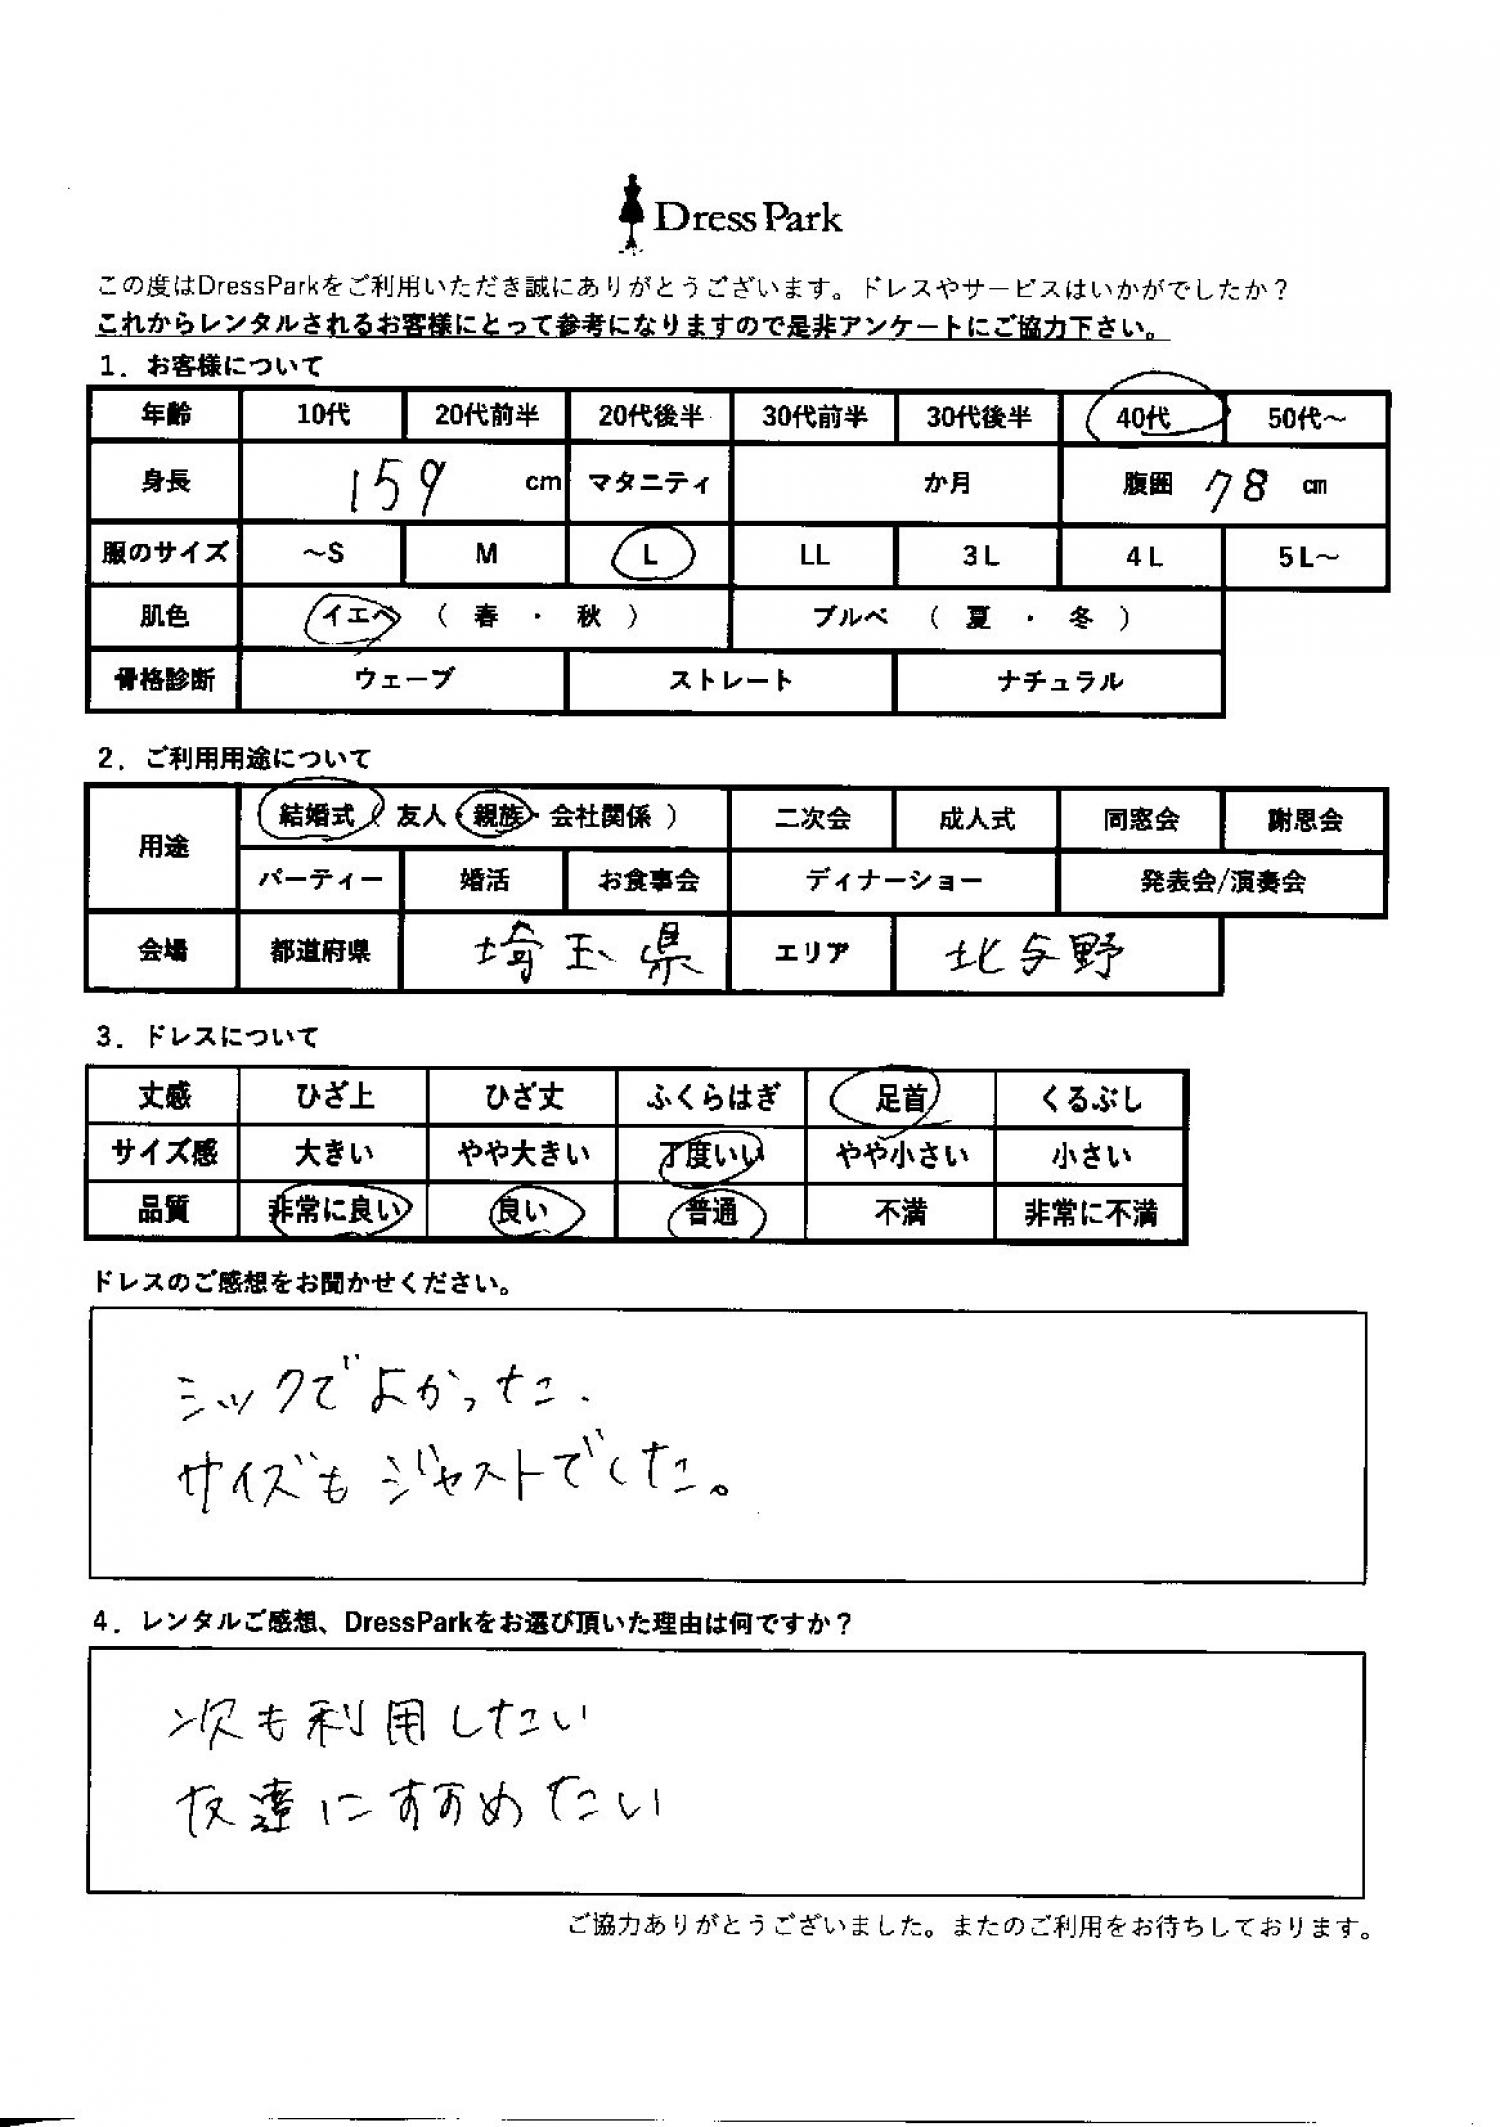 Dress Park
この度はDressParkをご利用いただき誠にありがとうございます。ドレスやサービスはいかがでしたか？
これからレンタルされるお客様にとって参考になりますので是非アンケートにご協力下さい。
1．お客様について
年齢 10代 20代前半 20代後半 30代前半 30代後半 40代 50代～
身長 159 cm マタニティ か月 腹囲 78 cm
服のサイズ ～S M L LL 3L 4L 5L～
肌色 イエベ （ 春 ・ 秋 ） ブルベ （ 夏 ・ 冬 ）
骨格診断 ウェーブ ストレート ナチュラル
2．ご利用用途について
用途 結婚式（ 友人・親族・会社関係 ） 二次会 成人式 同窓会 謝恩会
パーティー 婚活 お食事会 ディナーショー 発表会/演奏会
会場 都道府県 埼玉県 エリア 北与野
3．ドレスについて
丈感 ひざ上 ひざ丈 ふくらはぎ 足首 くるぶし
サイズ感 大きい やや大きい 丁度いい やや小さい 小さい
品質 非常に良い 良い 普通 不満 非常に不満
ドレスのご感想をお聞かせください。
シックでよかった.
サイズもジャストでした。
4．レンタルご感想、DressParkをお選び頂いた理由は何ですか？
次も利用したい
友達にすすめたい
ご協力ありがとうございました。またのご利用をお待ちしております。